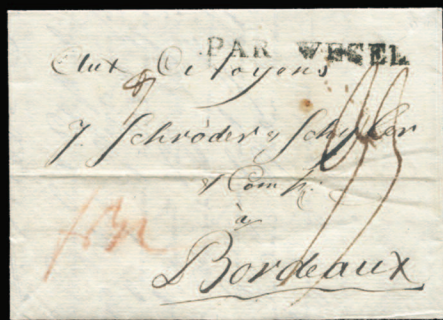 PAR WESEL
Aux Citoyens
J. Schröder & Schyler
& Comp.
à
Bordeaux